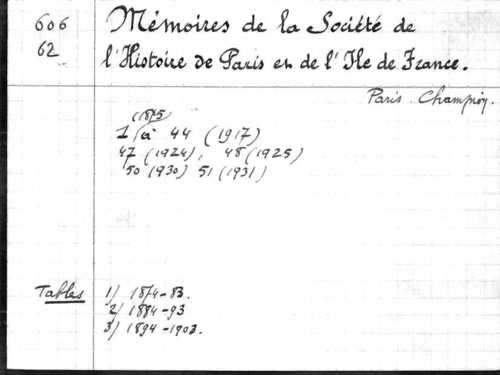 606
62
Mémoires de la Société de
l'Histoire de Paris en de l'Ile de France.
Paris. Champion.
(1875)
1 à 44 (1917)
47 (1924), 48 (1925)
50 (1930) 51 (1931)
Tables 1) 1874-83.
2) 1884-93
3) 1894-1903.